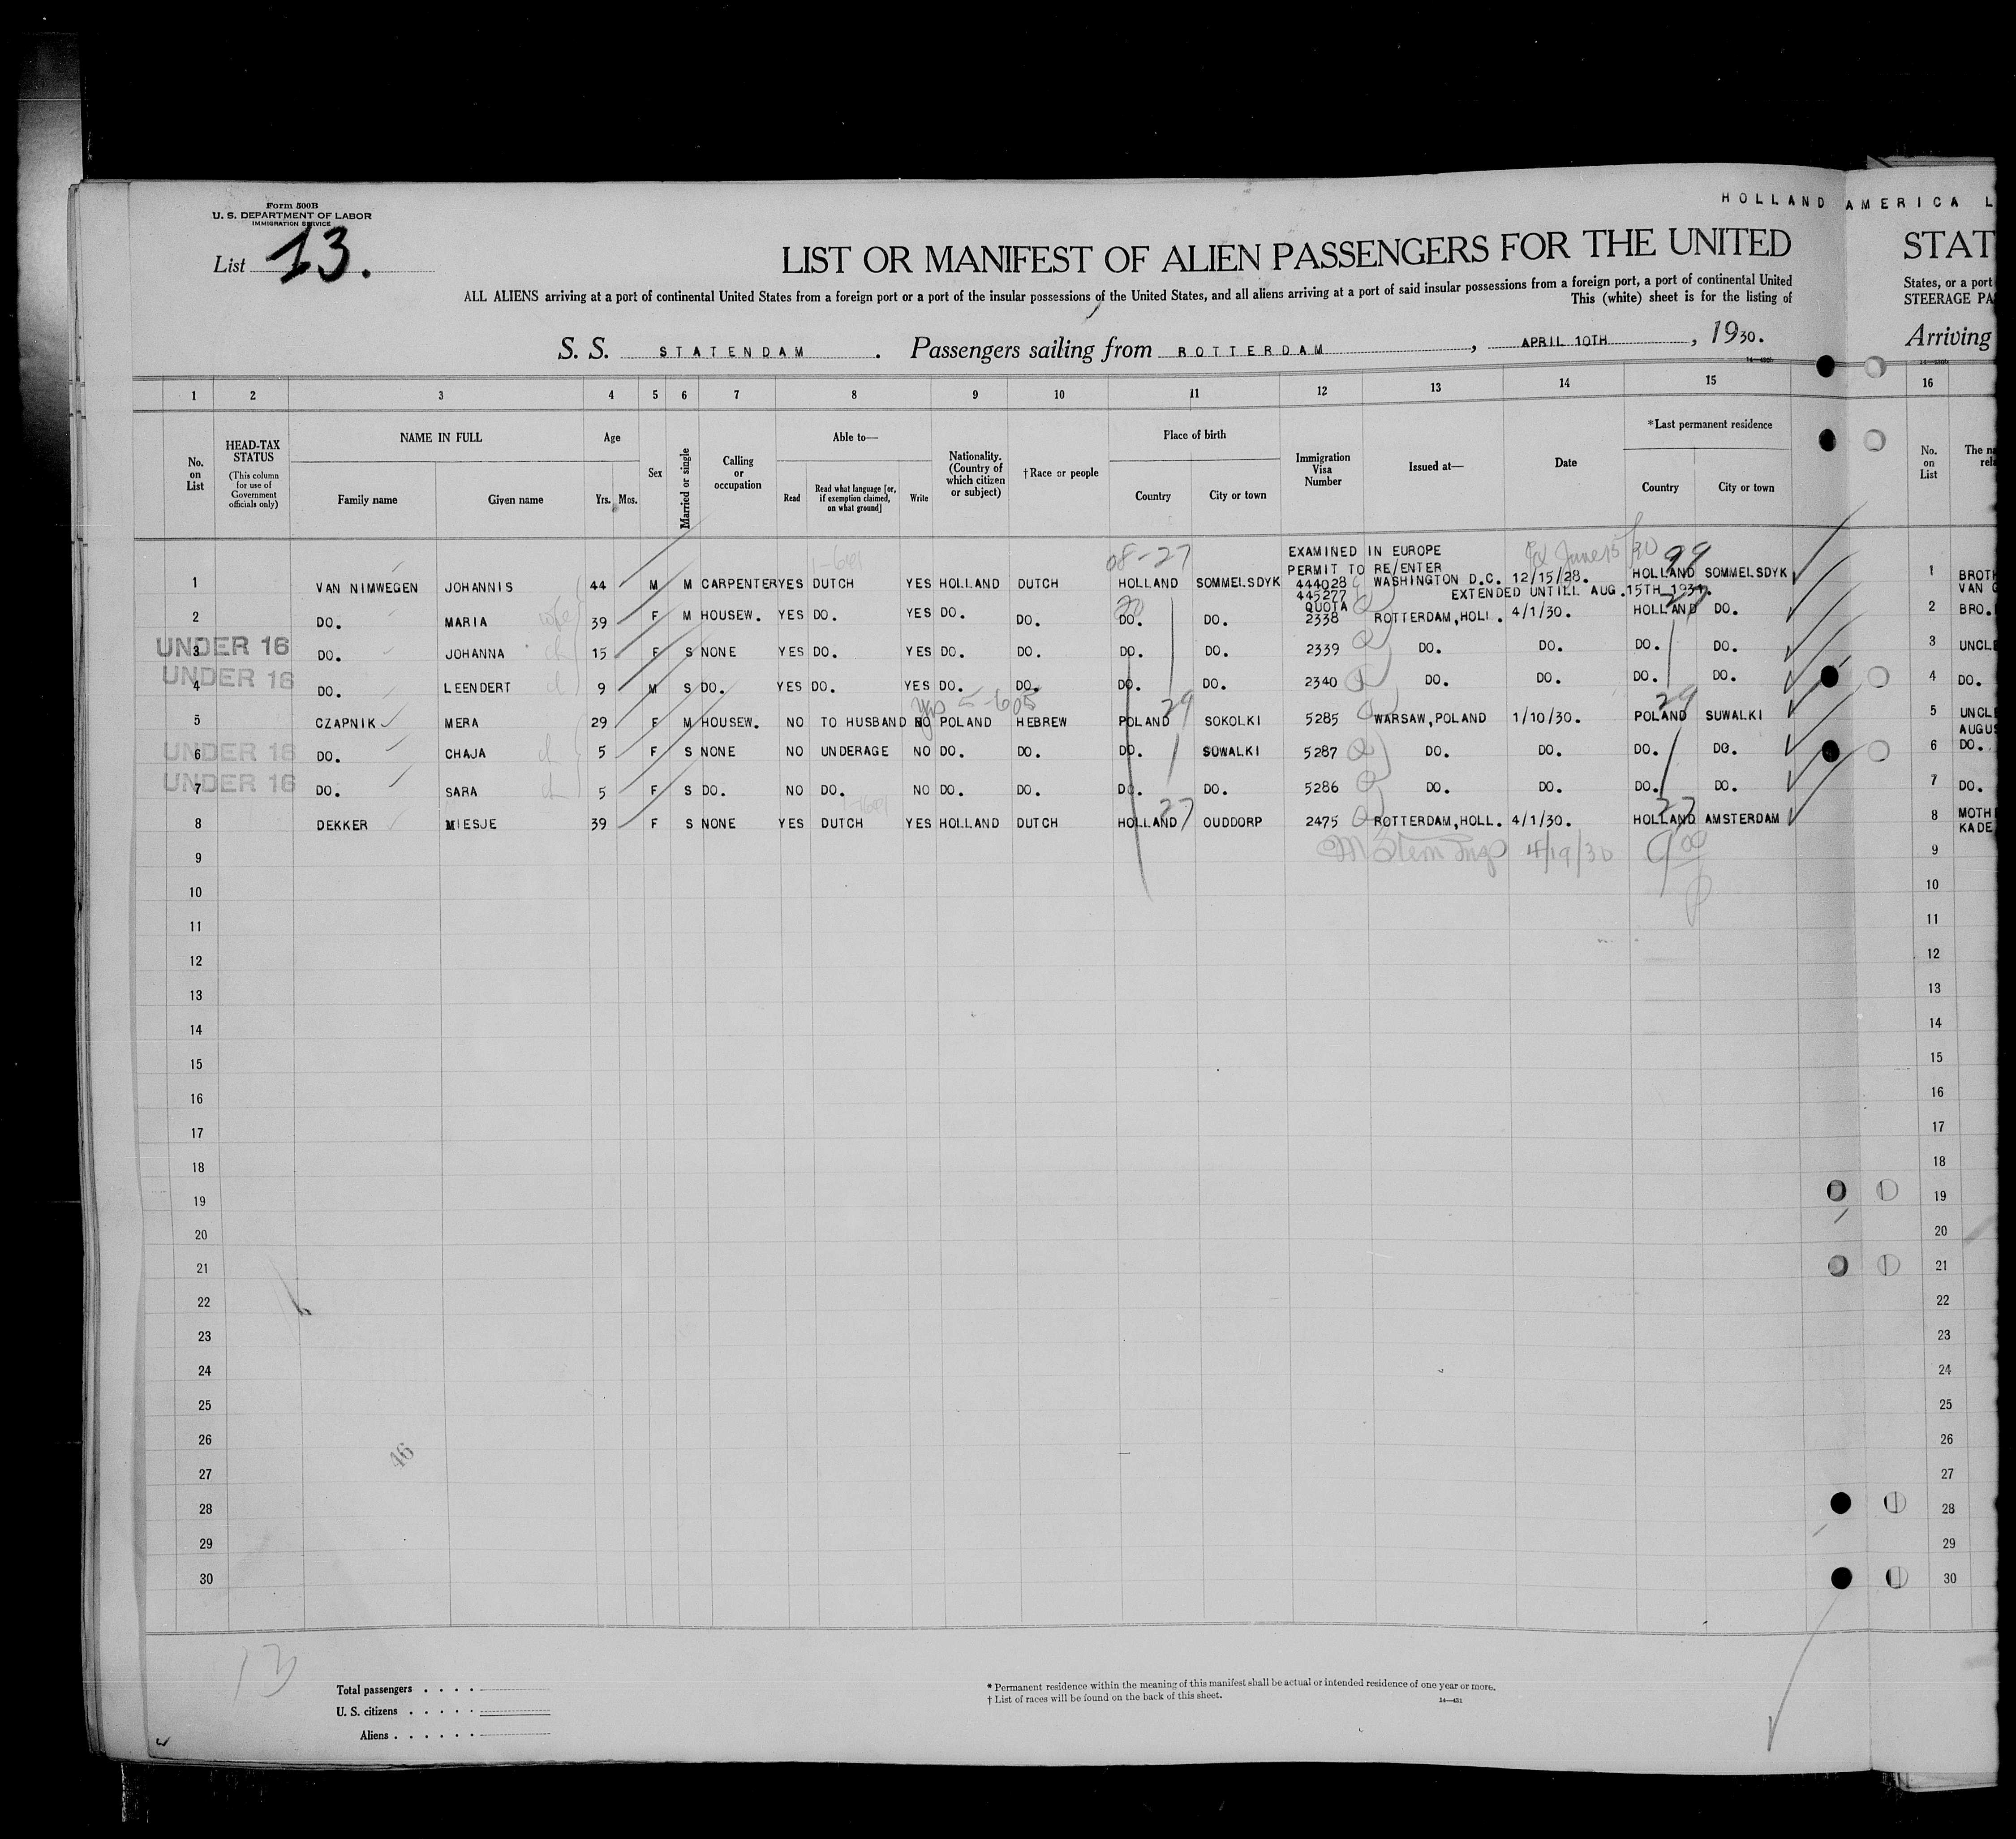 Form 500B
U. S. DEPARTMENT OF LABOR
IMMIGRATION SERVICE
List 13.
HOLLAND AMERICA L
LIST OR MANIFEST OF ALIEN PASSENGERS FOR THE UNITED STAT
ALL ALIENS arriving at a port of continental United States from a foreign port or a port of the insular possessions of the United States, and all aliens arriving at a port of said insular possessions from a foreign port, a port of continental United States, or a port
This (white) sheet is for the listing of STEERAGE PA
S. S. STATENDAM. Passengers sailing from ROTTERDAM, APRIL 10TH, 1930. Arriving
1 2 3 4 5 6 7 8 9 10 11 12 13 14 15 16
No. on List
HEAD-TAX STATUS
(This column for use of Government officials only)
NAME IN FULL
Family name Given name
Age
Yrs. Mos.
Sex
Married or single
Calling or occupation
Able to—
Read Read what language [or, if exemption claimed, on what ground] Write
Nationality. (Country of which citizen or subject)
†Race or people
Place of birth
Country City or town
Immigration Visa Number
Issued at—
Date
*Last permanent residence
Country City or town
No. on List
EXAMINED IN EUROPE
PERMIT TO RE/ENTER
1 VAN NIMWEGEN JOHANNIS 44 M M CARPENTER YES DUTCH YES HOLLAND DUTCH HOLLAND SOMMELSDYK 444028 WASHINGTON D.C. 12/15/28. HOLLAND SOMMELSDYK 1 BROTH
445277 EXTENDED UNTILL AUG.15TH 1931. VAN
QUOTA
2 DO. MARIA wife 39 F M HOUSEW. YES DO. YES DO. DO. DO. DO. 2338 ROTTERDAM,HOLL. 4/1/30. HOLLAND DO. 2 BRO.
UNDER 16
3 DO. JOHANNA ch 15 F S NONE YES DO. YES DO. DO. DO. DO. 2339 DO. DO. DO. DO. 3 UNCLE
UNDER 16
4 DO. LEENDERT ch 9 M S DO. YES DO. YES DO. DO. DO. DO. 2340 DO. DO. DO. DO. 4 DO.
5 CZAPNIK MERA 29 F M HOUSEW. NO TO HUSBAND NO POLAND HEBREW POLAND SOKOLKI 5285 WARSAW,POLAND 1/10/30. POLAND SUWALKI 5 UNCLE
AUGUS
UNDER 16
6 DO. CHAJA ch 5 F S NONE NO UNDERAGE NO DO. DO. DO. SUWALKI 5287 DO. DO. DO. DO. 6 DO.
UNDER 16
7 DO. SARA ch 5 F S DO. NO DO. NO DO. DO. DO. DO. 5286 DO. DO. DO. DO. 7 DO.
8 DEKKER MIESJE 39 F S NONE YES DUTCH YES HOLLAND DUTCH HOLLAND OUDDORP 2475 ROTTERDAM,HOLL. 4/1/30. HOLLAND AMSTERDAM 8 MOTH
KADE
4/19/30
9 9
10 10
11 11
12 12
13 13
14 14
15 15
16 16
17 17
18 18
19 19
20 20
21 21
22 22
23 23
24 24
25 25
26 26
27 27
28 28
29 29
30 30
46
13
Total passengers
U. S. citizens
Aliens
* Permanent residence within the meaning of this manifest shall be actual or intended residence of one year or more.
† List of races will be found on the back of this sheet.